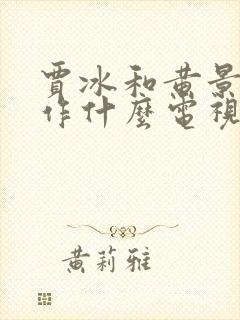 賈冰和黃景
作什麼電視
黃莉雅